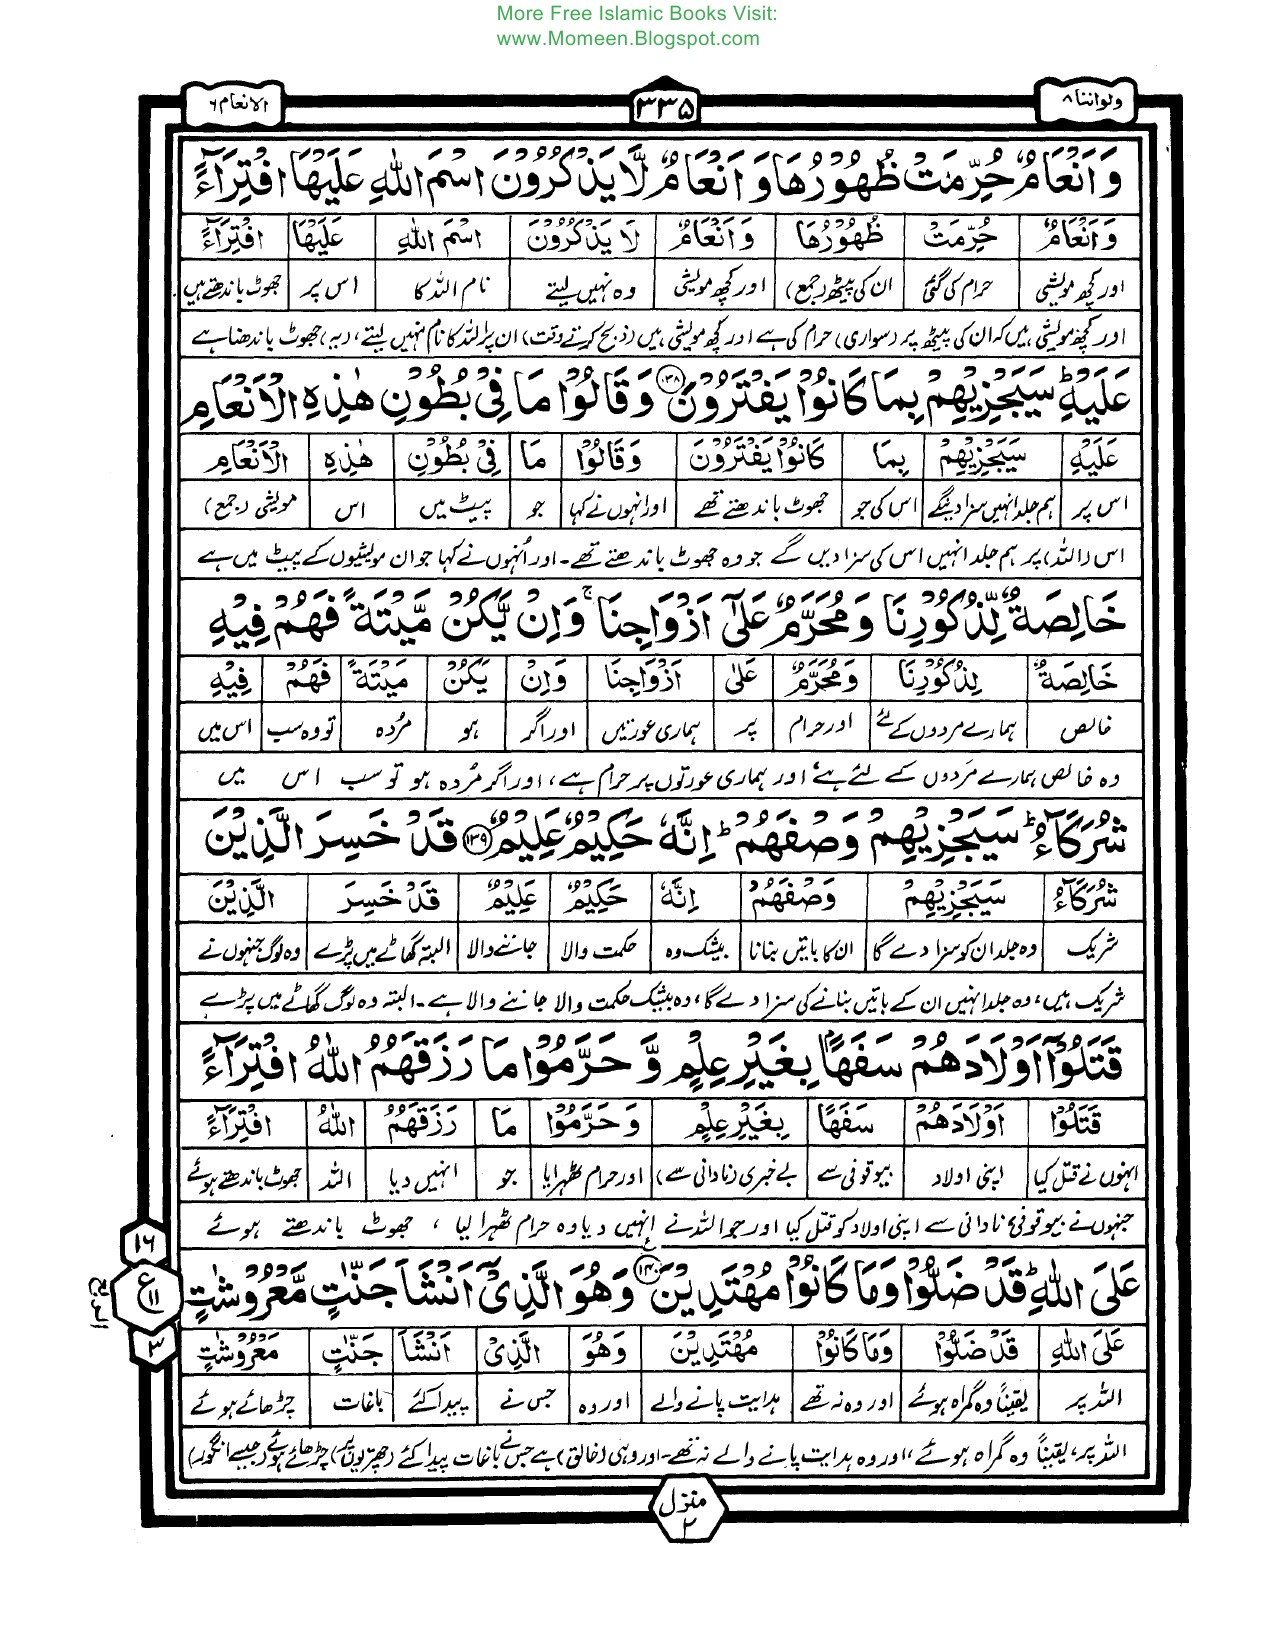 More Free Islamic Books Visit:
www.Momeen.Blogspot.com
ولواننا ٨
٣٣٥
الانعام ٦
وَ اَنْعَامٌ حُرِّمَتْ ظُهُوْرُهَا وَ اَنْعَامٌ لَّا يَذْكُرُوْنَ اسْمَ اللّٰهِ عَلَيْهَا افْتِرَآءً
وَ اَنْعَامٌ حُرِّمَتْ ظُهُوْرُهَا وَ اَنْعَامٌ لَا يَذْكُرُوْنَ اسْمَ اللّٰهِ عَلَيْهَا افْتِرَآءً
اور کچھ مویشی حرام کی گئی ان کی پیٹھ (جمع) اور کچھ مویشی وہ نہیں لیتے نام اللہ کا اس پر جھوٹ باندھتے ہیں
اور کچھ مویشی ہیں کہ ان کی پیٹھ پر (سواری) حرام کی ہے اور کچھ مویشی ہیں (ذبح کرتے وقت) ان پر اللہ کا نام نہیں لیتے، (یہ) جھوٹ باندھنا ہے
عَلَيْهِ ؕ سَيَجْزِيْهِمْ بِمَا كَانُوْا يَفْتَرُوْنَ ١٣٨ وَ قَالُوْا مَا فِيْ بُطُوْنِ هٰذِهِ الْاَنْعَامِ
عَلَيْهِ سَيَجْزِيْهِمْ بِمَا كَانُوْا يَفْتَرُوْنَ وَ قَالُوْا مَا فِيْ بُطُوْنِ هٰذِهِ الْاَنْعَامِ
اس پر ہم جلد انہیں سزا دینگے اس کی جو جھوٹ باندھتے تھے اور انہوں نے کہا جو پیٹ میں اس مویشی (جمع)
اس (اللہ) پر ہم جلد انہیں اس کی سزا دیں گے جو وہ جھوٹ باندھتے تھے۔ اور اُنہوں نے کہا جو ان مویشیوں کے پیٹ میں ہے
خَالِصَةٌ لِّذُكُوْرِنَا وَ مُحَرَّمٌ عَلٰٓى اَزْوَاجِنَا ۚ وَ اِنْ يَّكُنْ مَّيْتَةً فَهُمْ فِيْهِ
خَالِصَةٌ لِذُكُوْرِنَا وَ مُحَرَّمٌ عَلٰى اَزْوَاجِنَا وَ اِنْ يَكُنْ مَيْتَةً فَهُمْ فِيْهِ
خالص ہمارے مردوں کے لئے اور حرام پر ہماری عورتیں اور اگر ہو مُردہ تو وہ سب اس میں
وہ خالص ہمارے مَردوں کے لئے ہے اور ہماری عورتوں پر حرام ہے، اور اگر مُردہ ہو تو سب اس میں
شُرَكَآءُ ؕ سَيَجْزِيْهِمْ وَصْفَهُمْ ؕ اِنَّهٗ حَكِيْمٌ عَلِيْمٌ ١٣٩ قَدْ خَسِرَ الَّذِيْنَ
شُرَكَآءُ سَيَجْزِيْهِمْ وَصْفَهُمْ اِنَّهٗ حَكِيْمٌ عَلِيْمٌ قَدْ خَسِرَ الَّذِيْنَ
شریک وہ جلد ان کو سزا دے گا ان کا باتیں بنانا بیشک وہ حکمت والا جاننے والا البتہ گھاٹے میں پڑے وہ لوگ جنہوں نے
شریک ہیں، وہ جلد انہیں ان کے باتیں بنانے کی سزا دے گا، وہ بیشک حکمت والا جاننے والا ہے۔ البتہ وہ لوگ گھاٹے میں پڑے
قَتَلُوْٓا اَوْلَادَهُمْ سَفَهًۢا بِغَيْرِ عِلْمٍ وَّ حَرَّمُوْا مَا رَزَقَهُمُ اللّٰهُ افْتِرَآءً
قَتَلُوْا اَوْلَادَهُمْ سَفَهًا بِغَيْرِ عِلْمٍ وَ حَرَّمُوْا مَا رَزَقَهُمُ اللّٰهُ افْتِرَآءً
انہوں نے قتل کیا اپنی اولاد بیوقوفی سے بے خبری (نادانی سے) اور حرام ٹھہرایا جو انہیں دیا اللہ جھوٹ باندھتے ہوئے
جنہوں نے بیوقوفی نادانی سے اپنی اولاد کو قتل کیا اور جو اللہ نے اِنہیں دیا وہ حرام ٹھہرا لیا ، جھوٹ باندھتے ہوئے
عَلَى اللّٰهِ ؕ قَدْ ضَلُّوْا وَ مَا كَانُوْا مُهْتَدِيْنَ ١٤٠ وَ هُوَ الَّذِيْٓ اَنْشَاَ جَنّٰتٍ مَّعْرُوْشٰتٍ
عَلَى اللّٰهِ قَدْ ضَلُّوْا وَ مَا كَانُوْا مُهْتَدِيْنَ وَ هُوَ الَّذِيْ اَنْشَاَ جَنّٰتٍ مَعْرُوْشٰتٍ
اللہ پر یقیناً وہ گمراہ ہوئے اور وہ نہ تھے ہدایت پانے والے اور وہ جس نے پیدا کئے باغات چڑھائے ہوئے
اللہ پر، یقیناً وہ گمراہ ہوئے، اور وہ ہدایت پانے والے نہ تھے۔ اور وہی (خالق) ہے جس نے باغات پیدا کئے (چھتریوں پر) چڑھائے ہوئے (جیسے انگور)
١٦
ع
١١
٣
منزل
٢